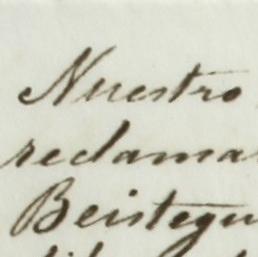 Nuestro
reclama
Beistegu